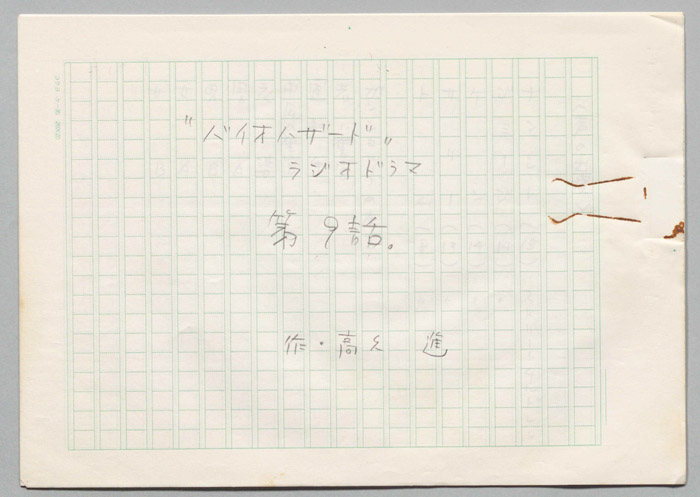 "バイオハザード"
ラジオドラマ
第9話。
作・高久 進